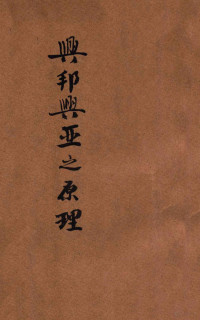 興邦興亚之原理